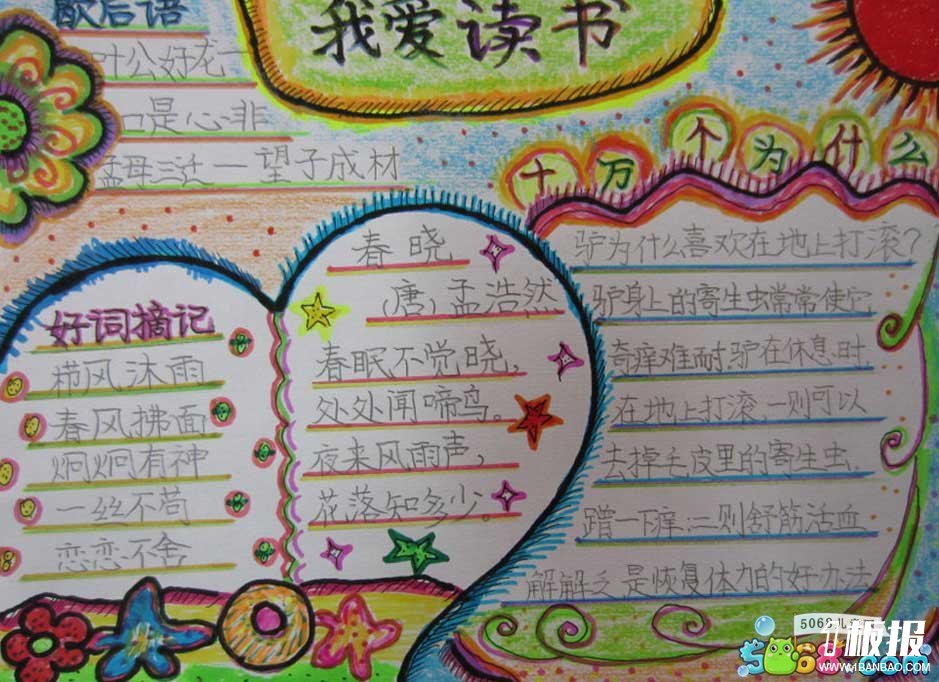 我爱读书
歇后语
叶公好龙一
口是心非
孟母三迁一望子成材
十万个为什么
好词摘记
栉风沐雨
春风拂面
炯炯有神
一丝不苟
恋恋不舍
春晓
(唐)孟浩然
春眠不觉晓,
处处闻啼鸟。
夜来风雨声,
花落知多少。
驴为什么喜欢在地上打滚?
驴身上的寄生虫常常使它
奇痒难耐,驴在休息时
在地上打滚,一则可以
去掉毛皮里的寄生虫,
蹭一下痒;二则舒筋活血
解解乏,是恢复体力的好办法
5068儿
1极报
WWW.1BANBAO.COM